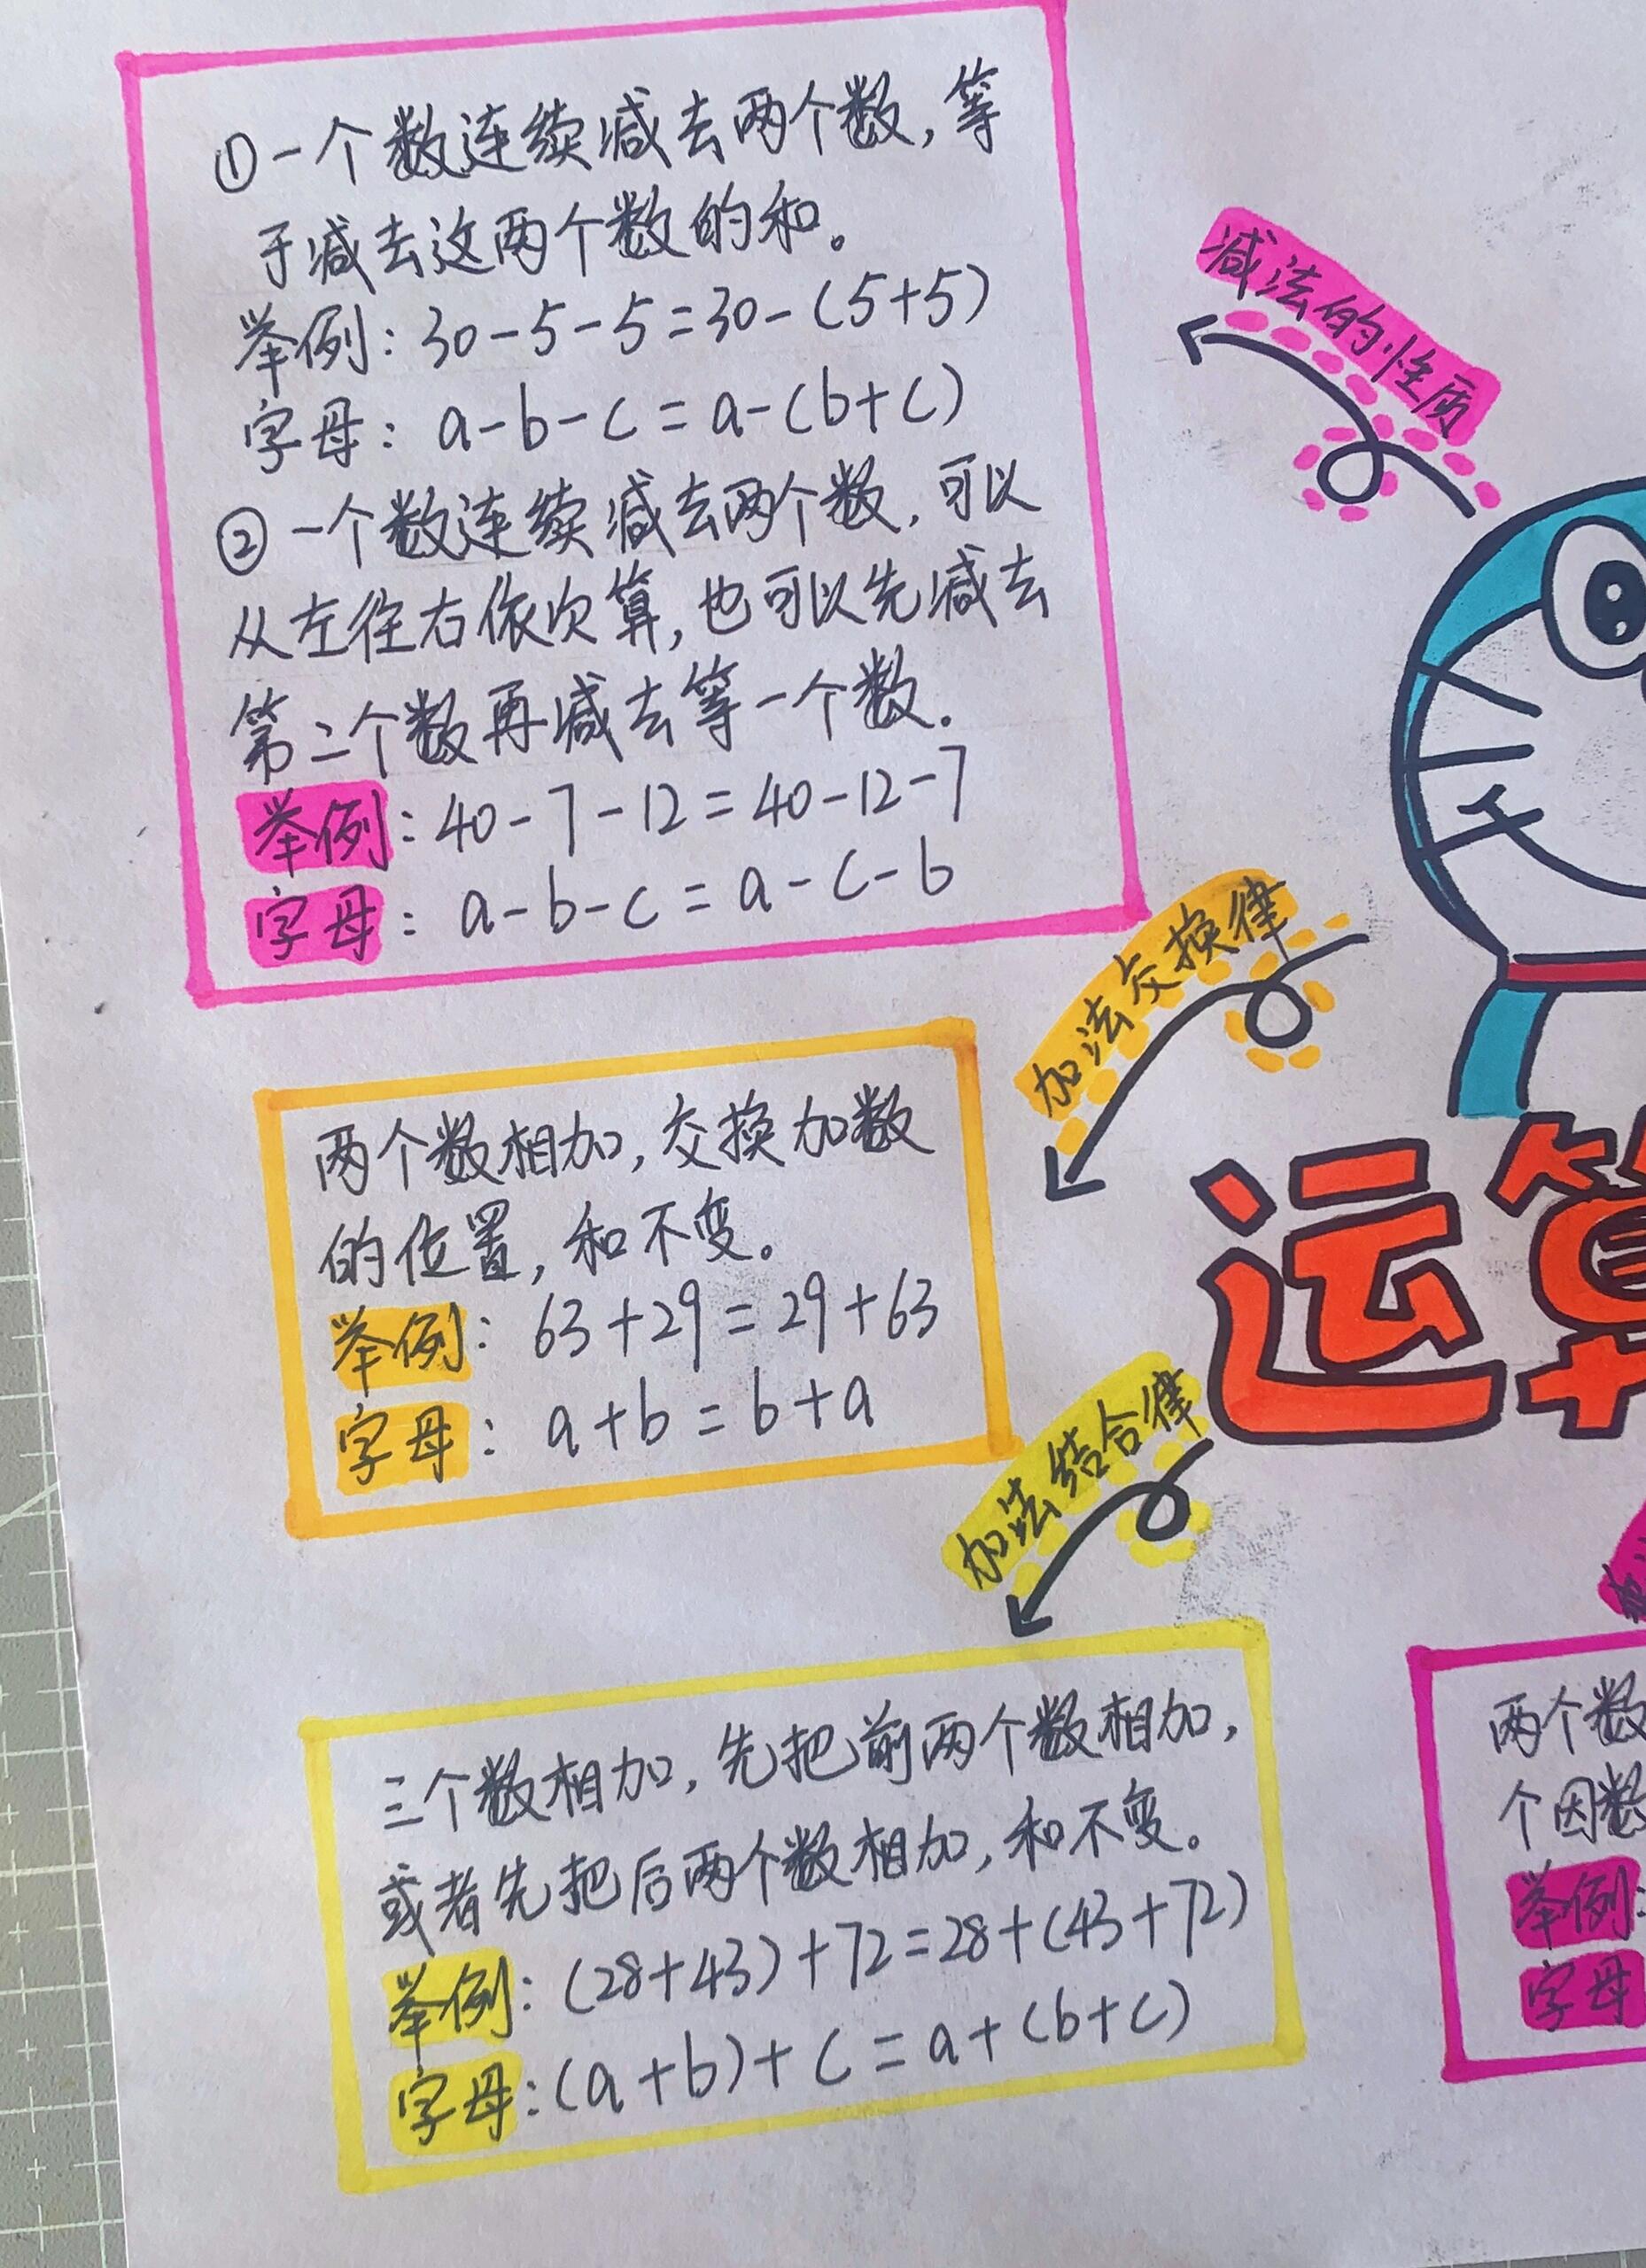 减法的性质
①一个数连续减去两个数,等
于减去这两个数的和。
举例:30-5-5=30-(5+5)
字母:a-b-c=a-(b+c)
②一个数连续减去两个数,可以
从左往右依次算,也可以先减去
第二个数再减去等一个数.
举例:40-7-12=40-12-7
字母:a-b-c=a-c-b
加法交换律
两个数相加,交换加数
的位置,和不变。
举例:63+29=29+63
字母:a+b=b+a
运算
加法结合律
三个数相加,先把前两个数相加,
或者先把后两个数相加,和不变。
举例:(28+43)+72=28+(43+72)
字母:(a+b)+c=a+(b+c)
两个数
个因数
举例:
字母